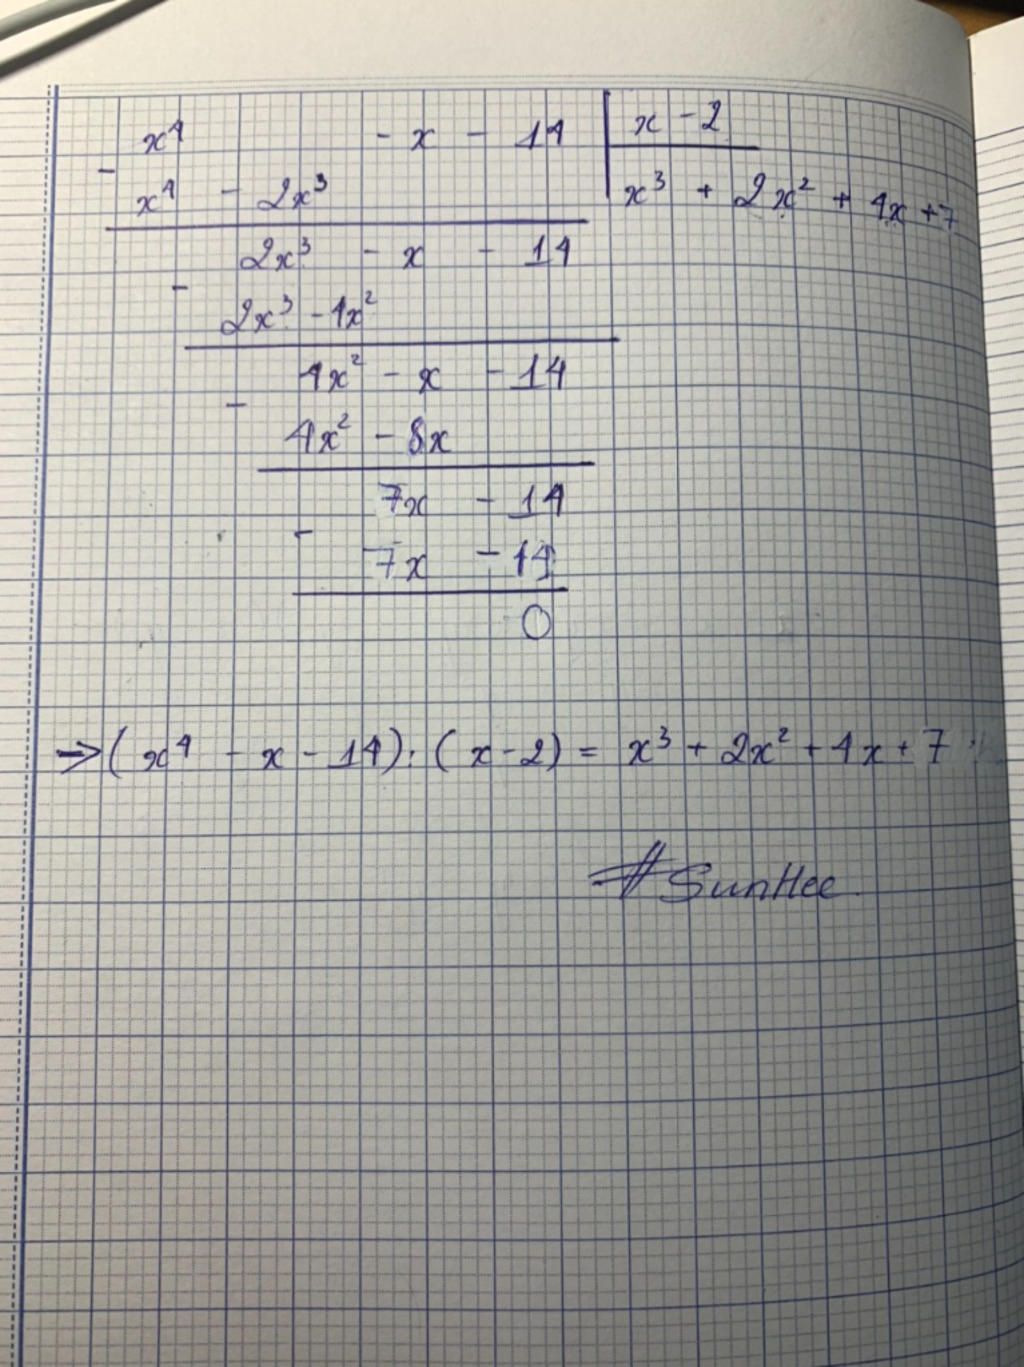 x⁴ - x - 14 | x - 2
-
x⁴ - 2x³ | x³ + 2x² + 4x + 7
2x³ - x - 14
-
2x³ - 4x²
4x² - x - 14
-
4x² - 8x
7x - 14
-
7x - 14
0
⇒ (x⁴ - x - 14) : (x - 2) = x³ + 2x² + 4x + 7
#SunHee